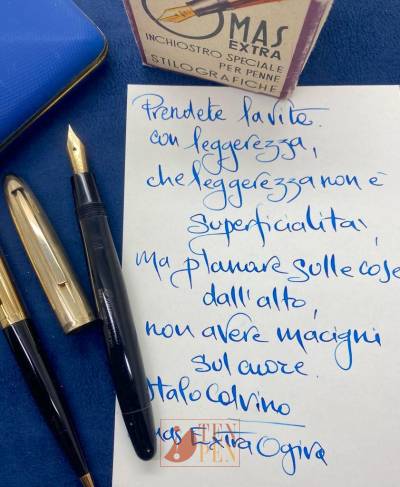 OMAS
EXTRA
INCHIOSTRO SPECIALE
PER PENNE
STILOGRAFICHE
Prendete la vita
con leggerezza,
che leggerezza non è
superficialità,
ma planare sulle cose
dall'alto,
non avere macigni
sul cuore.
Italo Calvino
Omas Extra Ogiva
TEN
PEN